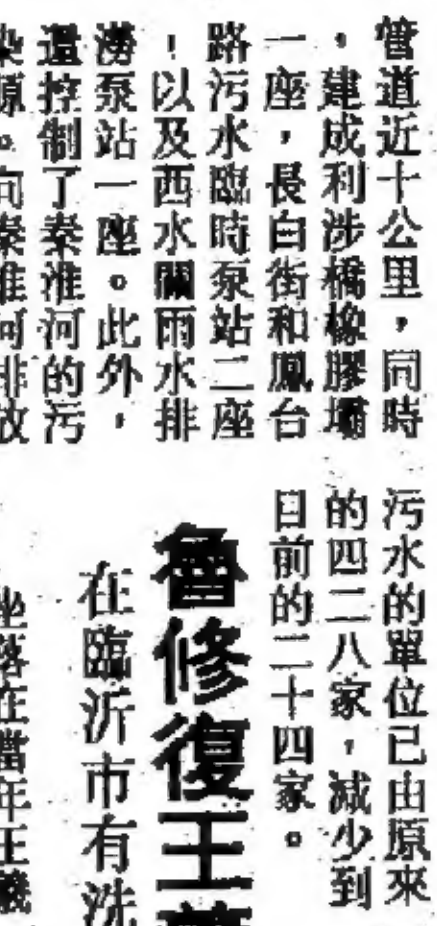 管道近十公里，同時
，建成利涉橋橡膠壩
一座，長白街和鳳台
路污水臨時泵站二座
！以及西水關雨水排
澇泵站一座。此外，
還控制了秦淮河的污
染源。向秦淮河排放
污水的單位已由原來
的四二八家，減少到
目前的二十四家。
魯修復王
在臨沂市有洗
坐落在當年王羲